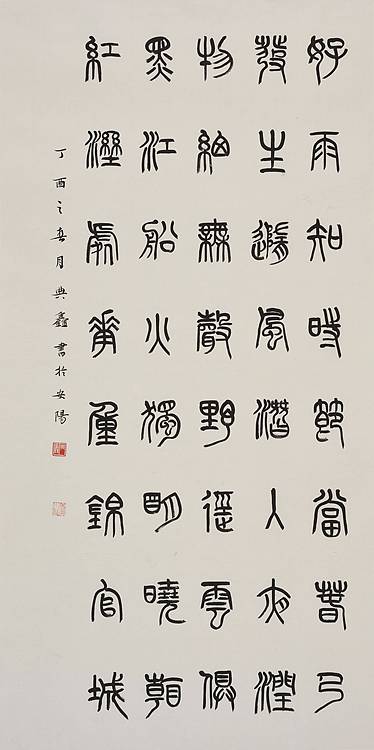 好雨知時節當春乃
發生隨風潛入夜潤
物細無聲野徑雲俱
黑江船火獨明曉看
紅濕處花重錦官城
丁酉之春月典鑫書於安陽